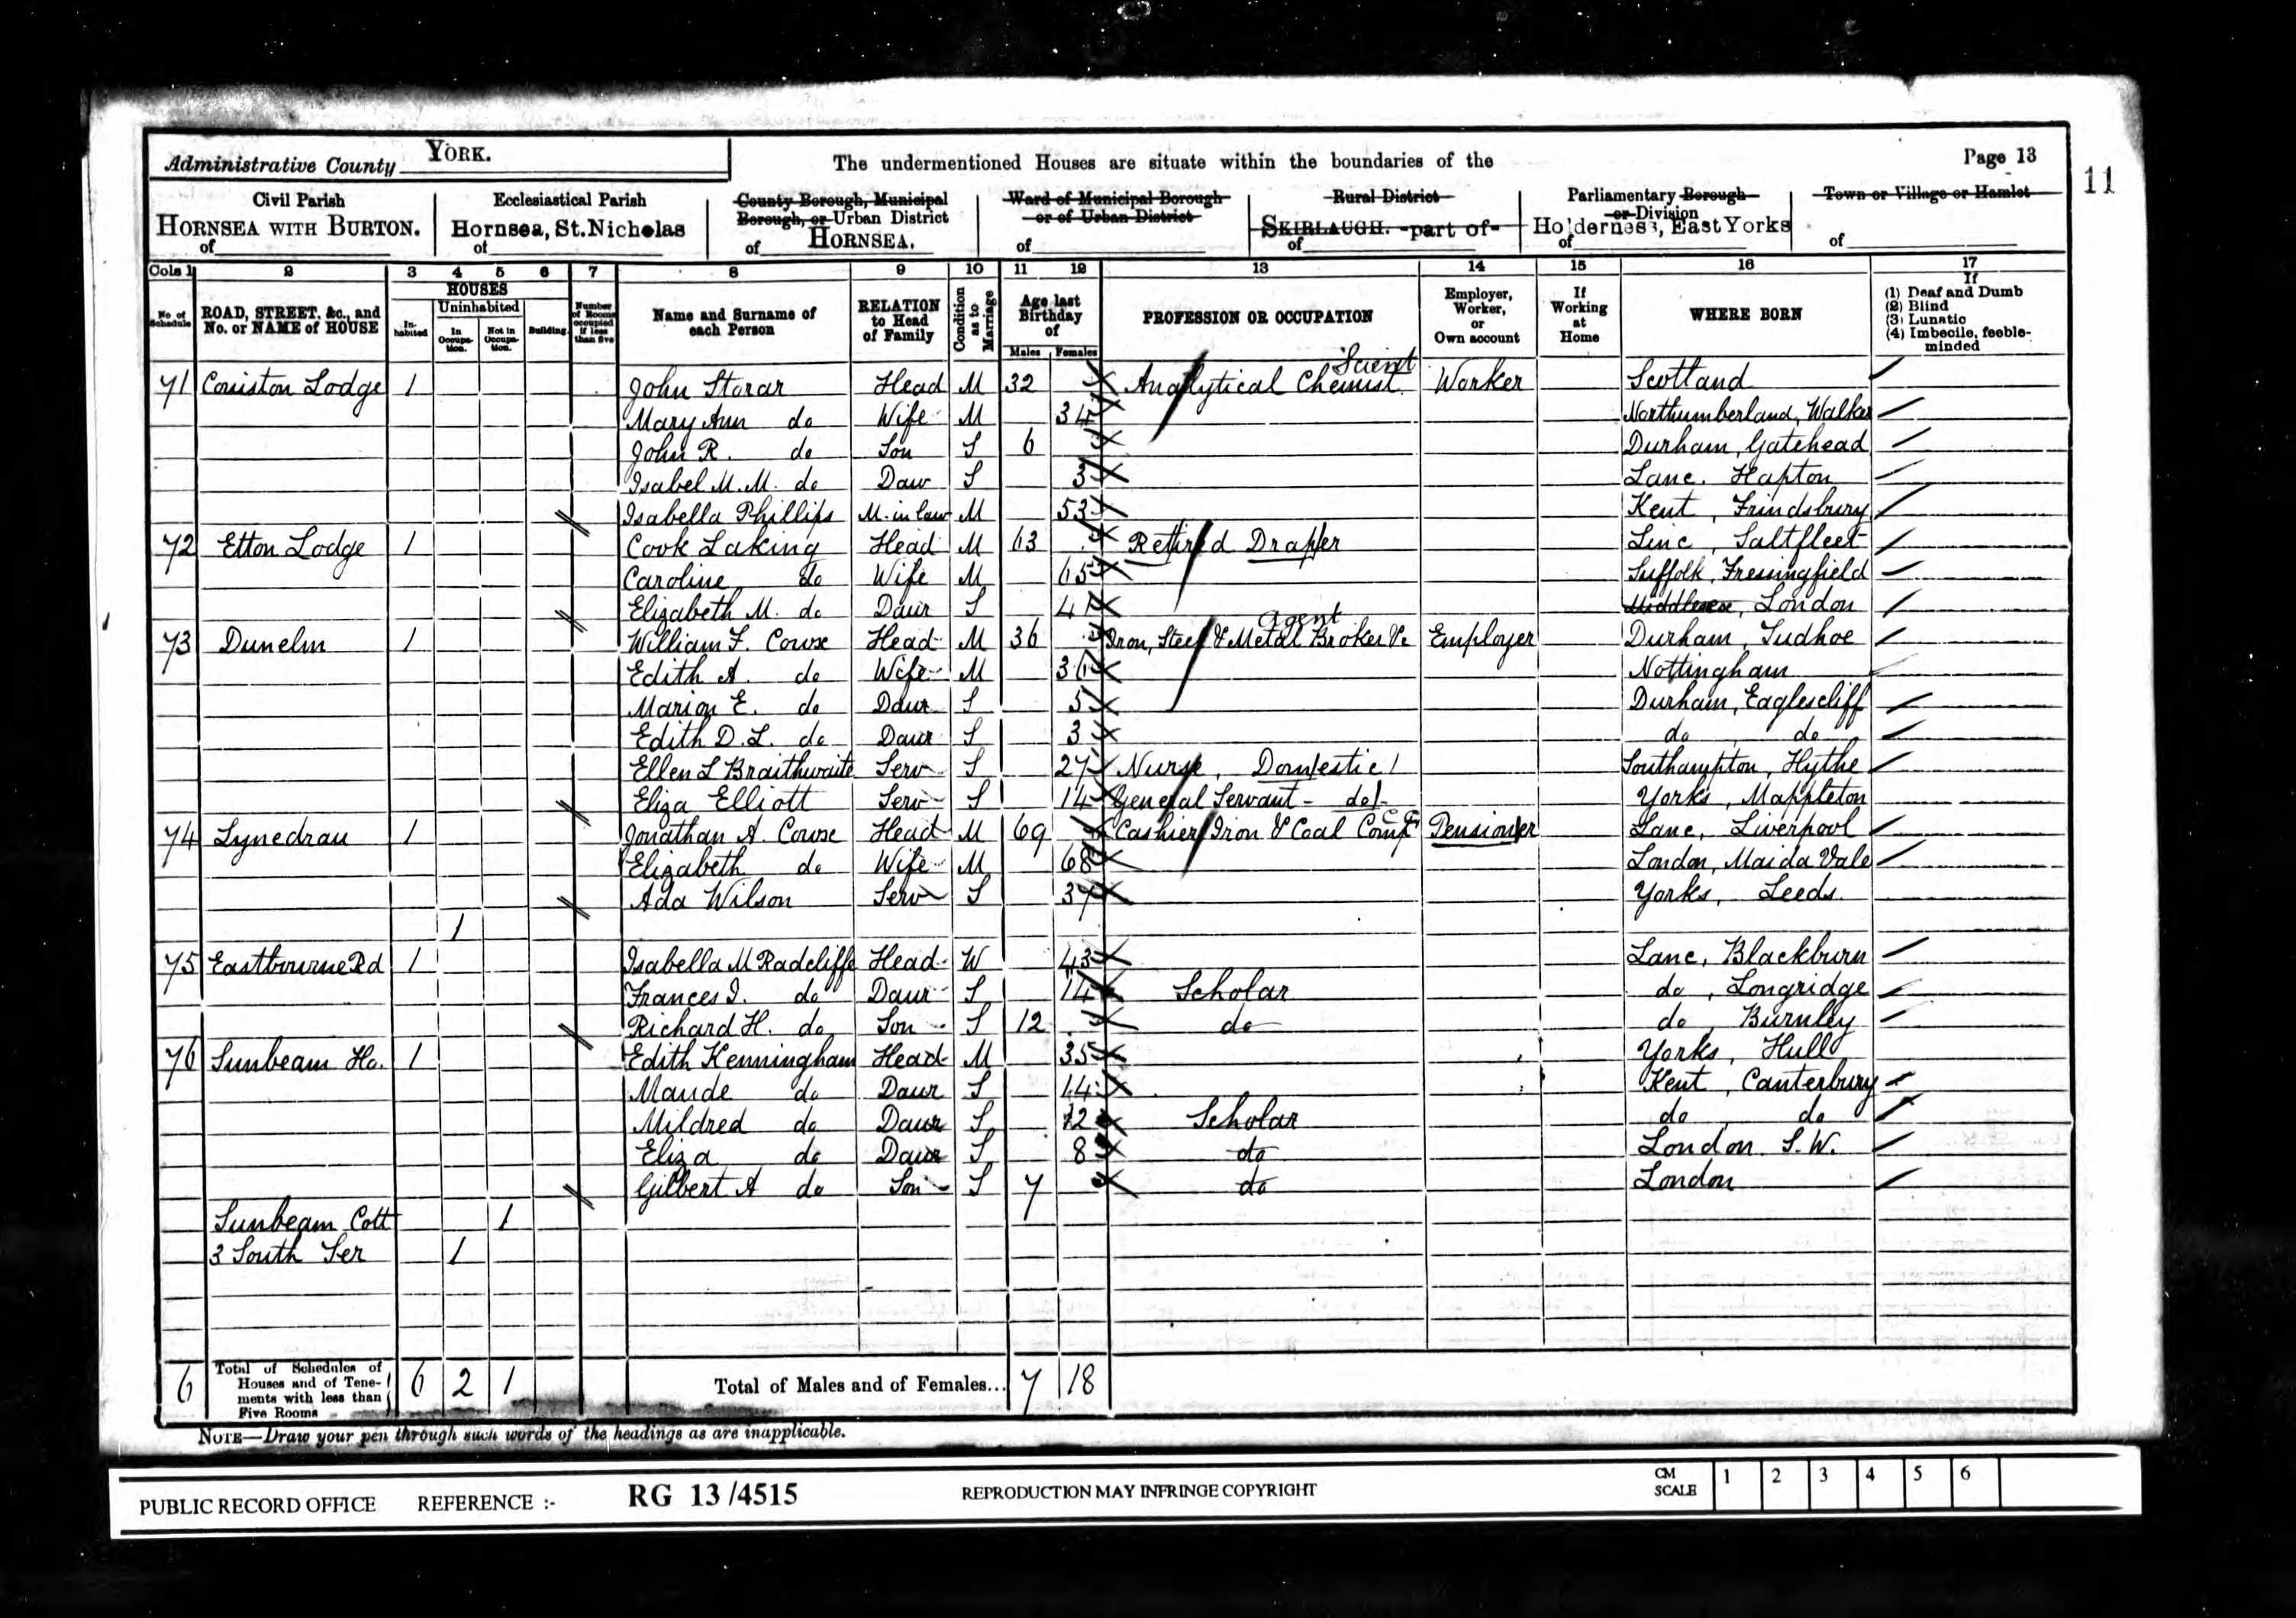 Administrative County YORK.
The undermentioned Houses are situate within the boundaries of the
Page 13
11
Civil Parish
HORNSEA WITH BURTON.
of
Ecclesiastical Parish
Hornsea, St. Nicholas
of
County Borough, Municipal
Borough, or Urban District
of HORNSEA.
Ward of Municipal Borough
or of Urban District
of
Rural District
SKIRLAUGH. -part of-
of
Parliamentary Borough
or Division
Holderness, East Yorks
of
Town or Village or Hamlet
of
Cols 1 2 3 4 5 6 7 8 9 10 11 12 13 14 15 16 17
No. of Schedule
ROAD, STREET, &c., and No. or NAME of HOUSE
HOUSES
Inhabited
Uninhabited
In Occupation.
Not in Occupation.
Building.
Number of Rooms occupied if less than five
Name and Surname of each Person
RELATION to Head of Family
Condition as to Marriage
Age last Birthday of
Males Females
PROFESSION OR OCCUPATION
Employer, Worker, or Own account
If Working at Home
WHERE BORN
If
(1) Deaf and Dumb
(2) Blind
(3) Lunatic
(4) Imbecile, feeble-minded
Scient
71 Coniston Lodge 1 John Storar Head M 32 Analytical Chemist Worker Scotland
Mary Ann do Wife M 34 Northumberland, Walker
John R. do Son S 6 Durham, Gatehead
Isabel M. M. do Daur S 3 Lanc. Hapton
Isabella Phillips M. in law M 53 Kent, Frindsbury
72 Etton Lodge 1 Cook Laking Head M 63 Retired Draper Linc, Saltfleet
Caroline do Wife M 65 Suffolk, Fressingfield
Elizabeth M. do Daur S 41 Middlesex, London
agent
73 Dunelm 1 William F. Cowx Head M 36 Iron, Steel & Metal Broker &c Employer Durham, Tudhoe
Edith A. do Wife M 36 Nottingham
Marion E. do Daur S 5 Durham, Eaglescliff
Edith D. L. do Daur S 3 do do
Ellen L Braithwaite Serv S 27 Nurse, Domestic Southampton, Hythe
Eliza Elliott Serv S 14 General Servant - do - Yorks, Mappleton
74 Lynedrau 1 Jonathan A. Cowx Head M 69 Cashier Iron & Coal Comp Pensioner Lanc, Liverpool
Elizabeth do Wife M 68 London, Maida Vale
Ada Wilson Serv S 37 Yorks, Leeds.
1
75 Eastbourne Rd 1 Isabella M Radcliffe Head W 43 Lanc, Blackburn
Frances I. do Daur S 14 Scholar do, Longridge
Richard H. do Son S 12 do do Burnley
76 Sunbeam Ho. 1 Edith Kenningham Head M 35 Yorks, Hull
Maude do Daur S 14 Kent, Canterbury
Mildred do Daur S 12 Scholar do do
Eliza do Daur S 8 do London. S.W.
Gilbert A do Son S 7 do London
Sunbeam Cott 1
3 South Ter 1
6 Total of Schedules of Houses and of Tenements with less than Five Rooms 6 2 1 Total of Males and of Females... 7 18
NOTE—Draw your pen through such words of the headings as are inapplicable.
PUBLIC RECORD OFFICE REFERENCE :- RG 13 /4515 REPRODUCTION MAY INFRINGE COPYRIGHT CM SCALE 1 2 3 4 5 6